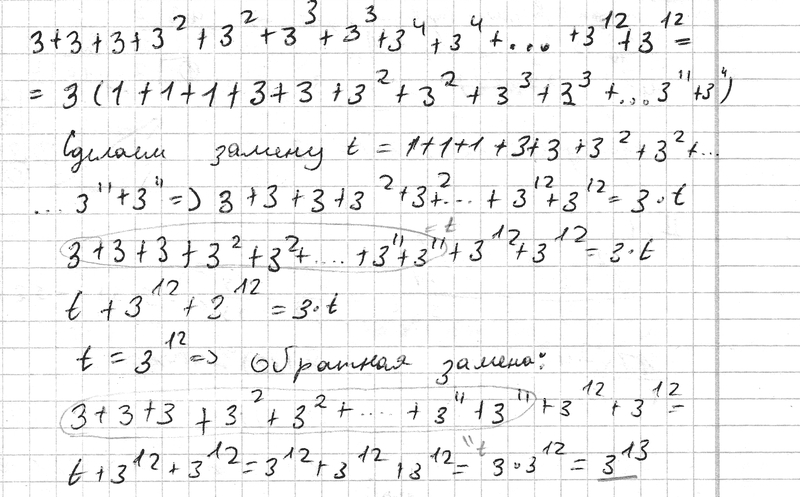 3+3+3+3²+3²+3³+3³+3⁴+3⁴+... +3¹²+3¹²=
= 3(1+1+1+3+3+3²+3²+3³+3³+...3¹¹+3¹¹)
Сделаем замену t = 1+1+1+3+3+3²+3²+...
...3¹¹+3¹¹ => 3+3+3+3²+3²+... + 3¹²+3¹² = 3·t
= t
3+3+3+3²+3²+.... +3¹¹+3¹¹+3¹²+3¹² = 3·t
t + 3¹² + 3¹² = 3·t
t = 3¹² => Обратная замена:
3+3+3+3²+3²+.... + 3¹¹+3¹¹+3¹²+3¹² =
" t
t+3¹²+3¹² = 3¹²+3¹²+3¹² = 3·3¹² = 3¹³